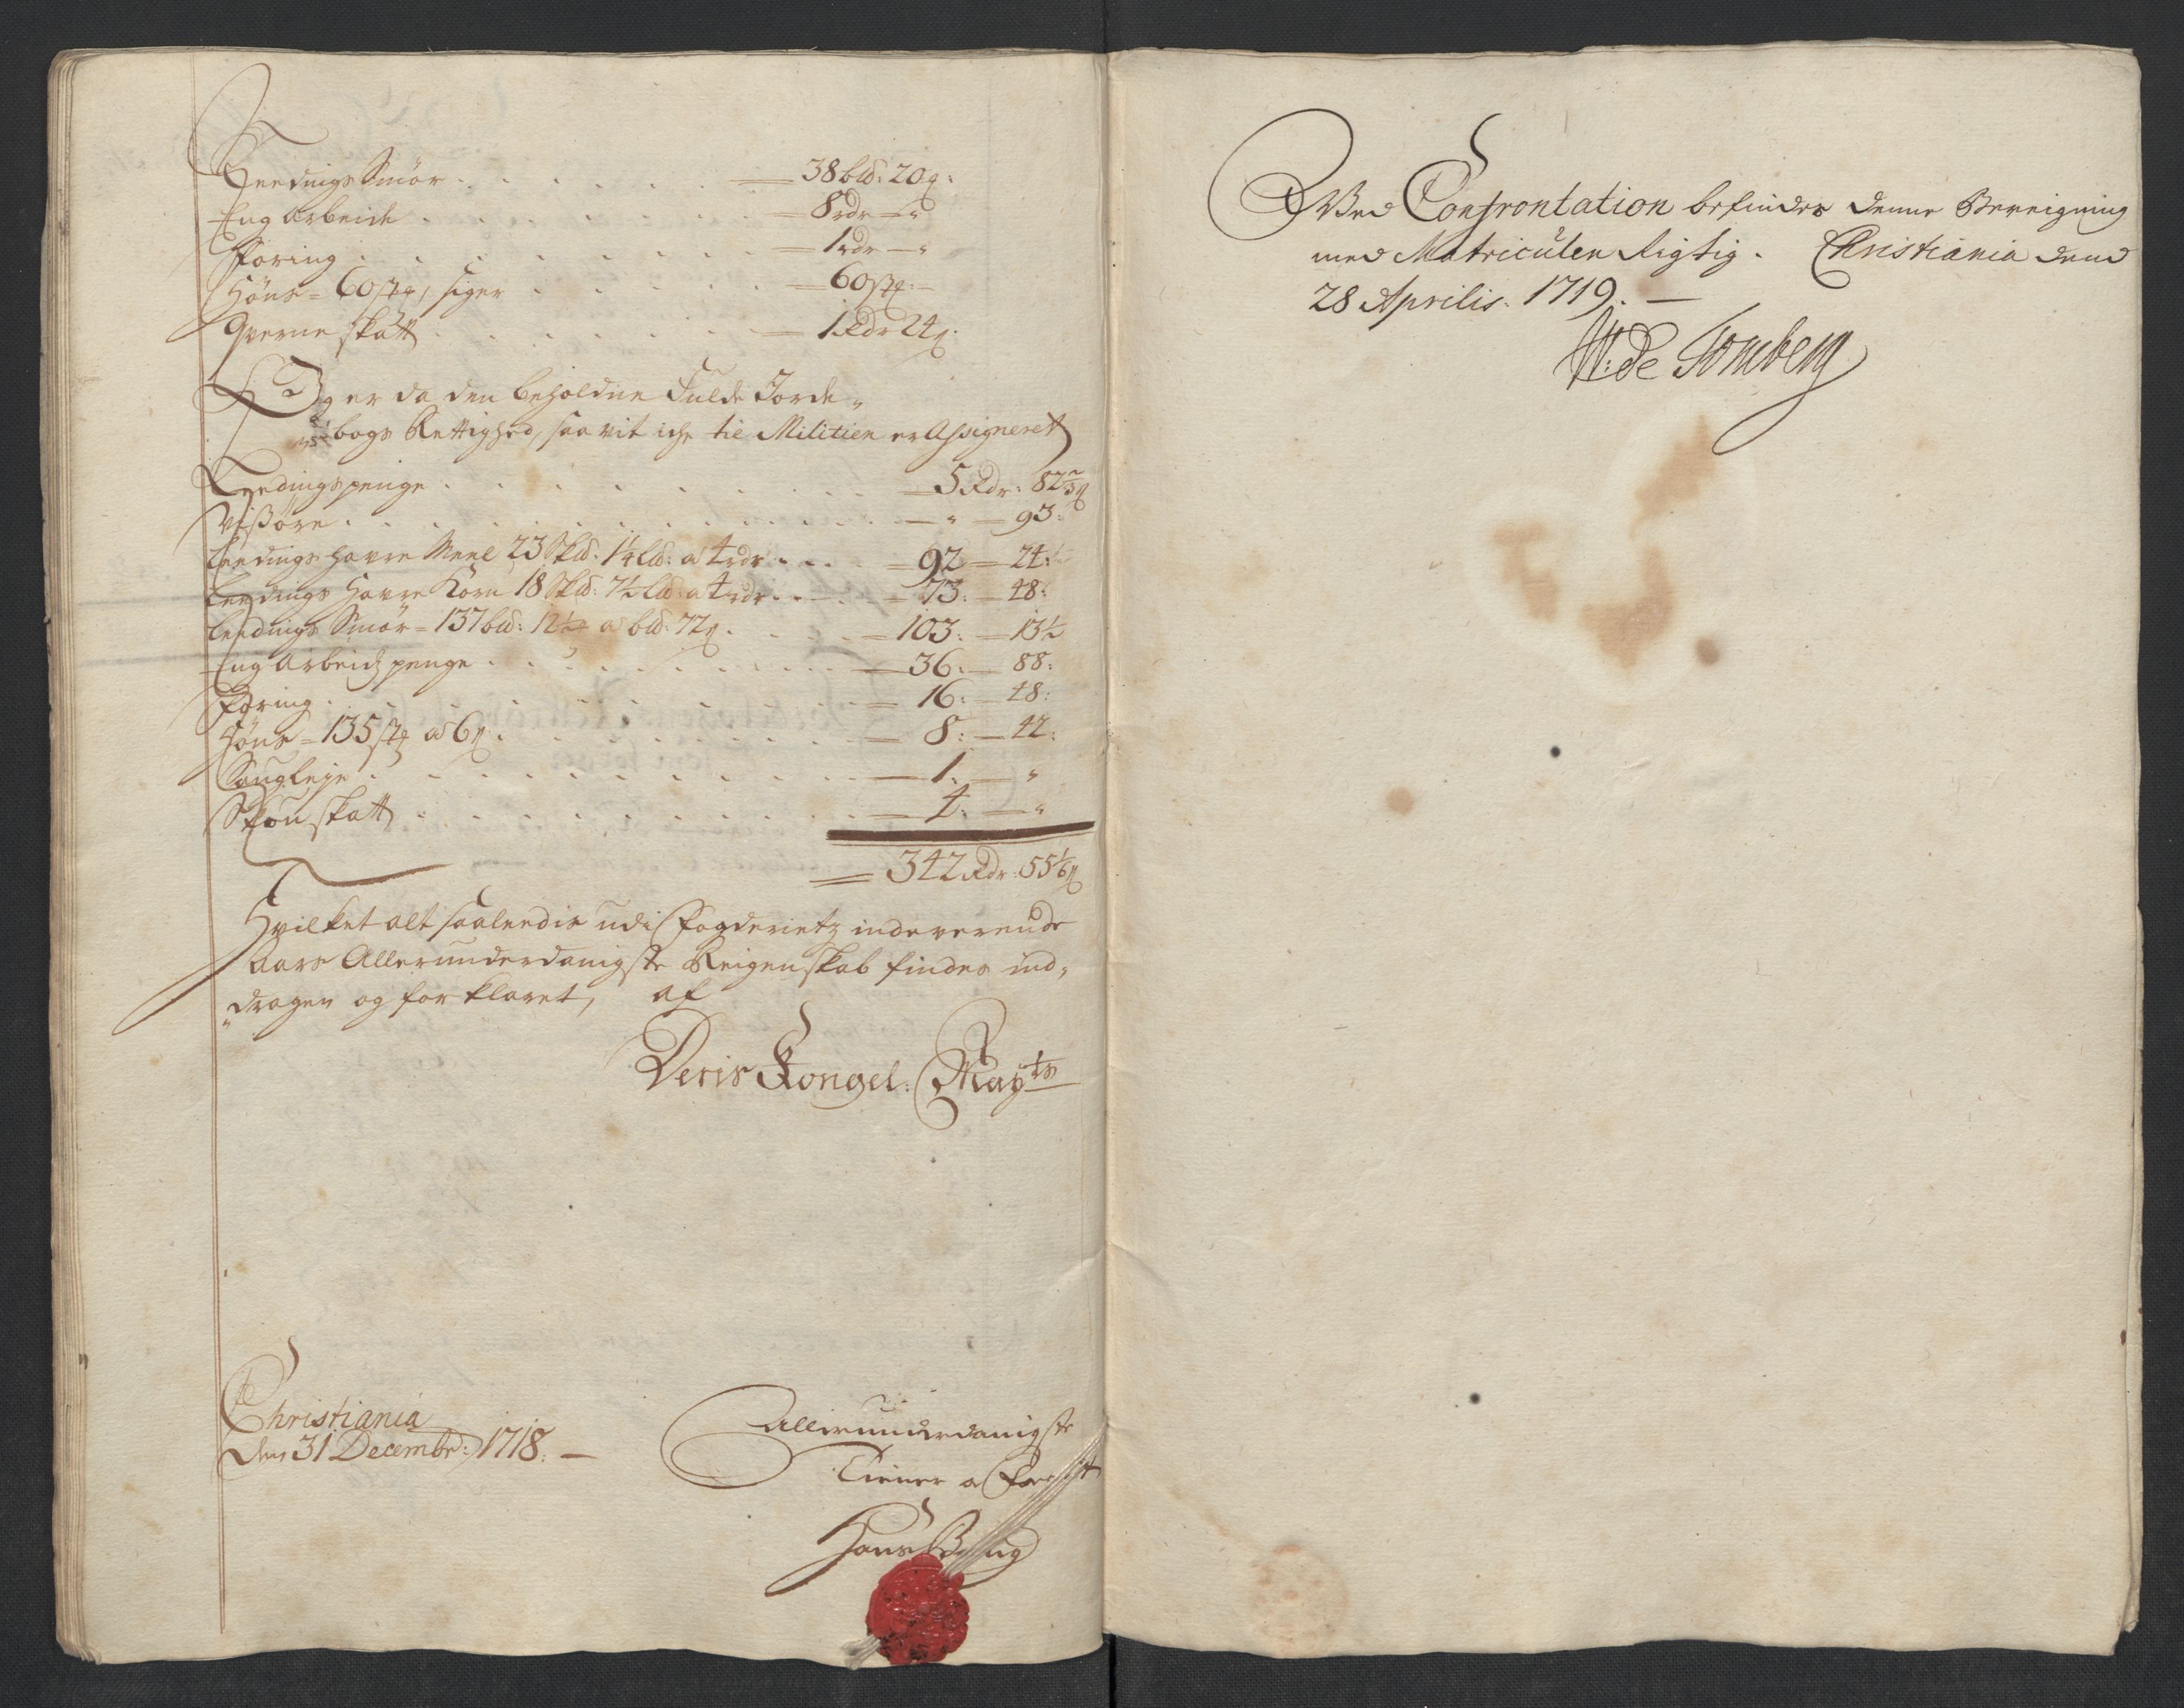 Leedings Smör . . . . . . 38 bld: 20 ƺ:
Eng Arbeide . . . . . . 8 rdr — "
Foring . . . . . . 1 rdr — "
Höns = 60 stƶ, siger . . . . 60 stƶ: —
Qverne skatt . . . . . . 1 Rdr 24 ƺ:
Og er da den beholdne Fulde Jorde„
„bogs Rettighed, saa vit iche til Militien er Assigneret
Leedingspenge . . . . . . 5 Rdr: 82⅔ ƺ
Wißöre . . . . . . " — 93:
Leedings Havre Meel 23 Skld: 1¼ Lld: a 4 rdr . . . 92 — 24:
Leedings Havre Korn 18 Skld: 7½ Lld: a 4 rdr . . . 73: — 48:
Leedings Smör = 137 bld: 12½ a bld: 72 ƺ . . . 103: — 13½
Eng Arbeidz penge . . . . . . 36: — 88:
Foring . . . . . . 16: — 48:
Höns = 135 stƶ a 6 ƺ . . . . . . 8: — 42:
Saugleye . . . . . . 1: — "
Skouskatt . . . . . . 4: — "
342 Rdr: 55⅙ ƺ
Hvilket alt saaleedis udi Fogderietz indeverende
Aars Allerunderdanigste Reigenskab findes ind„
„dragen og forklaret, af
Deris Kongel: Mayts
Christiania
den 31 Decembr: 1718. —
Allerunderdanigste
Tiener
Hans Bing
Ved Confrontation befindes denne Bereigning
med Matriculen Rigtig. Christiania dend
28 Aprilis. 1719. —
W: de Tomberg